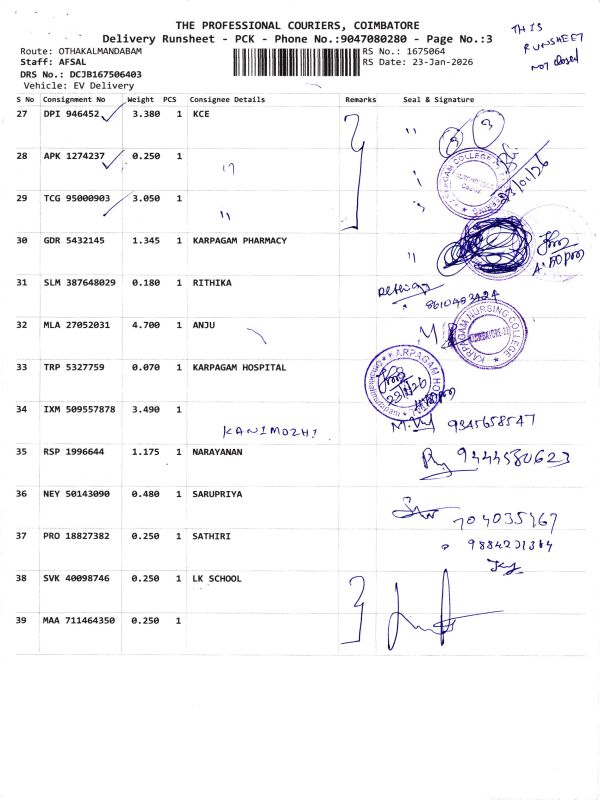 THE PROFESSIONAL COURIERS, COIMBATORE
Delivery Runsheet - PCK - Phone No.:9047080280 - Page No.:3
THIS
RUNSHEET
not closed
Route: OTHAKALMANDABAM RS No.: 1675064
Staff: AFSAL RS Date: 23-Jan-2026
DRS No.: DCJB167506403
Vehicle: EV Delivery
S No Consignment No Weight PCS Consignee Details Remarks Seal & Signature
27 DPI 946452 3.380 1 KCE "
28 APK 1274237 0.250 1 "
29 TCG 95000903 3.050 1 "
30 GDR 5432145 1.345 1 KARPAGAM PHARMACY "
31 SLM 387648029 0.180 1 RITHIKA
32 MLA 27052031 4.700 1 ANJU
KARPAGAM NURSING COLLEGE
33 TRP 5327759 0.070 1 KARPAGAM HOSPITAL
34 IXM 509557878 3.490 1
KANIMOZHI 9345658547
35 RSP 1996644 1.175 1 NARAYANAN 9444580623
36 NEY 50143090 0.480 1 SARUPRIYA
37 PRO 18827382 0.250 1 SATHIRI
38 SVK 40098746 0.250 1 LK SCHOOL
39 MAA 711464350 0.250 1